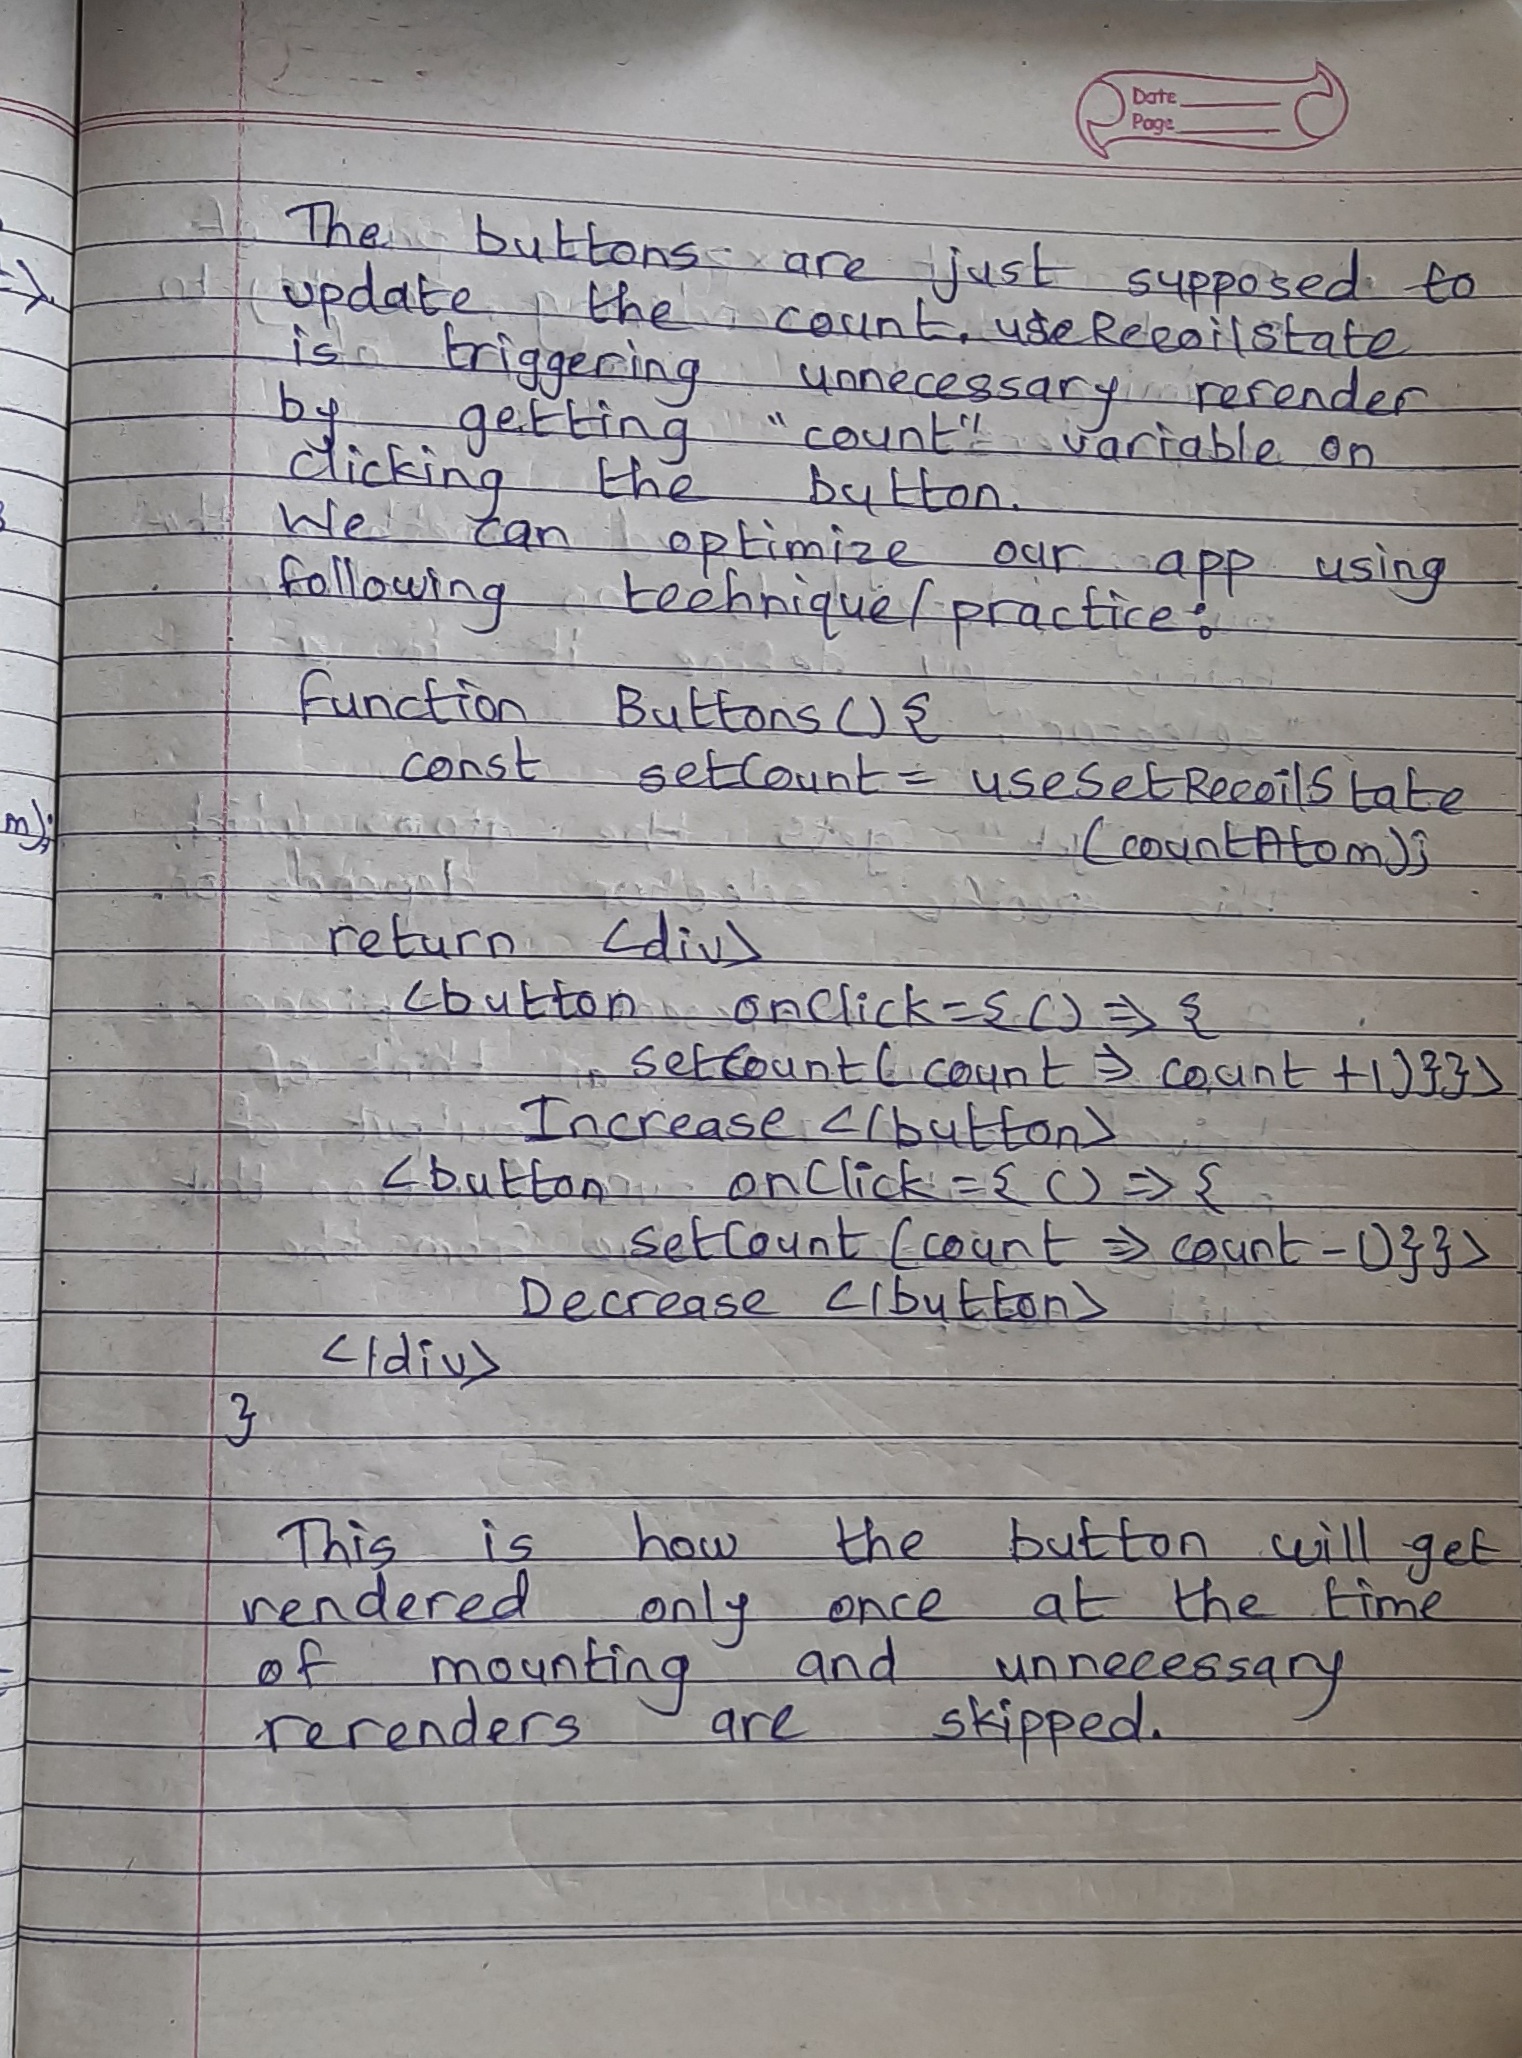 Date
Page
The buttons are just supposed to
update the count. useRecoilState
is triggering unnecessary rerender
by getting "count" variable on
clicking the button.
We can optimize our app using
following technique/practice:
function Buttons(){
const setCount = useSetRecoilState
(countAtom);
return <div>
<button onClick={() => {
setCount(count => count +1)}}>
Increase </button>
<button onClick={() => {
setCount(count => count -1)}}>
Decrease </button>
</div>
}
This is how the button will get
rendered only once at the time
of mounting and unnecessary
rerenders are skipped.
m);